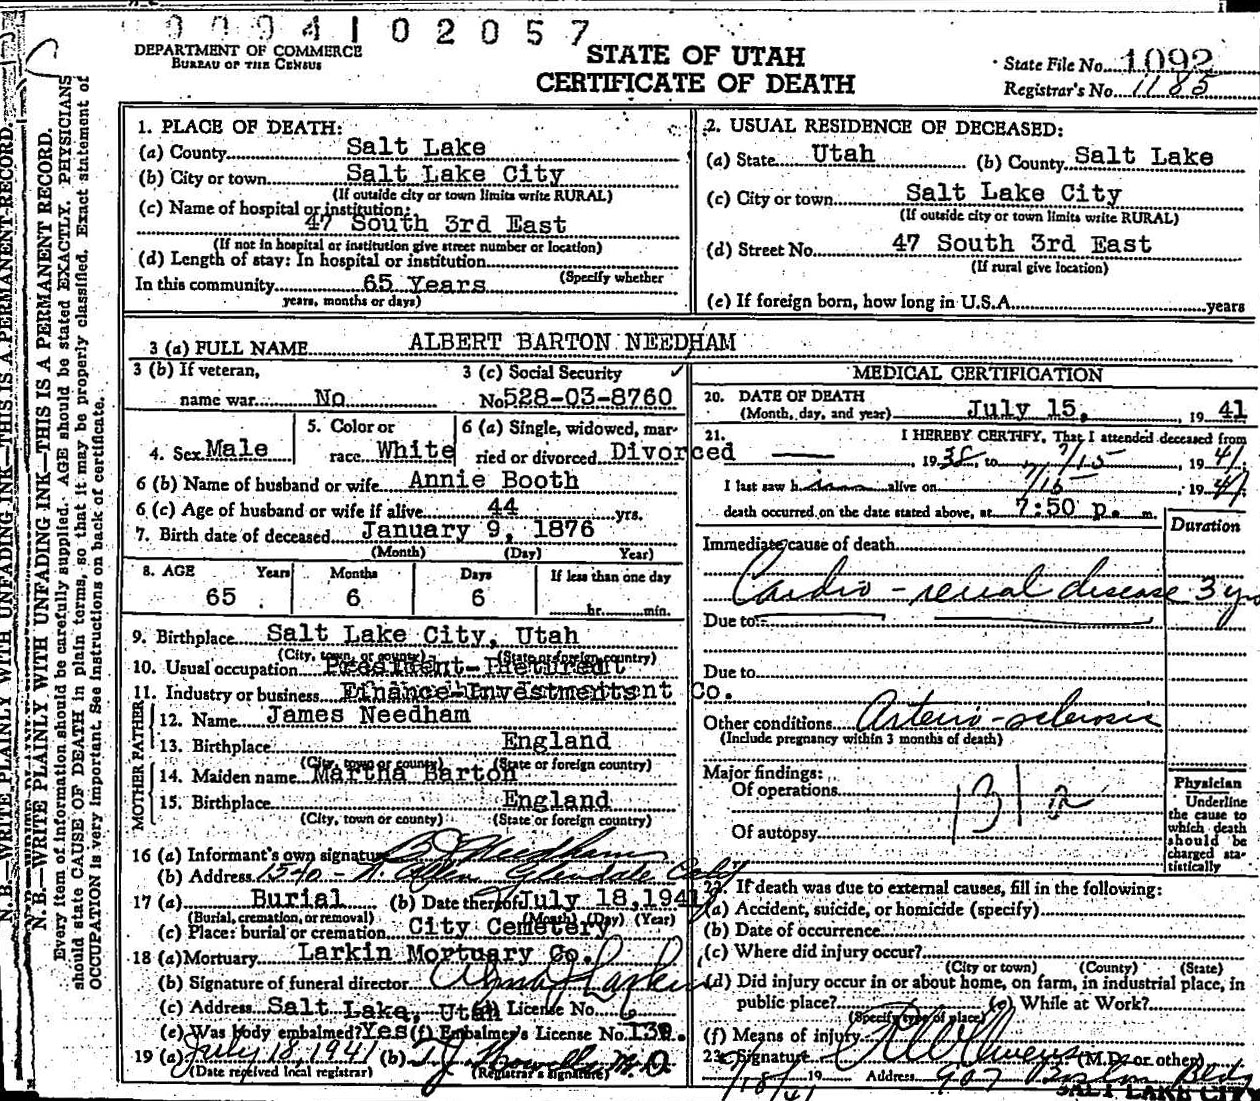 0 0 9 4 1 0 2 0 5 7
DEPARTMENT OF COMMERCE
BUREAU OF THE CENSUS
STATE OF UTAH
CERTIFICATE OF DEATH
State File No. 1092
Registrar's No. 1185
N.B.—WRITE PLAINLY WITH UNFADING INK—THIS IS A PERMANENT RECORD.
N.B.—WRITE PLAINLY WITH UNFADING INK—THIS IS A PERMANENT RECORD.
Every item of information should be carefully supplied. AGE should be stated EXACTLY. PHYSICIANS
should state CAUSE OF DEATH in plain terms, so that it may be properly classified. Exact statement of
OCCUPATION is very important. See instructions on back of certificate.
1. PLACE OF DEATH:
(a) County Salt Lake
(b) City or town Salt Lake City
(If outside city or town limits write RURAL)
(c) Name of hospital or institution:
47 South 3rd East
(If not in hospital or institution give street number or location)
(d) Length of stay: In hospital or institution
(Specify whether
In this community 65 Years
years, months or days)
2. USUAL RESIDENCE OF DECEASED:
(a) State Utah (b) County Salt Lake
(c) City or town Salt Lake City
(If outside city or town limits write RURAL)
(d) Street No. 47 South 3rd East
(If rural give location)
(e) If foreign born, how long in U.S.A. years
3 (a) FULL NAME ALBERT BARTON NEEDHAM
3 (b) If veteran,
name war No
3 (c) Social Security
No. 528-03-8760
4. Sex Male
5. Color or
race White
6 (a) Single, widowed, mar-
ried or divorced Divorced
6 (b) Name of husband or wife Annie Booth
6 (c) Age of husband or wife if alive 44 yrs.
7. Birth date of deceased January 9, 1876
(Month) (Day) Year)
8. AGE Years Months Days If less than one day
65 6 6 hr. min.
9. Birthplace Salt Lake City, Utah
(City, town, or county) (State or foreign country)
10. Usual occupation President-
11. Industry or business Finance-Investment Co.
FATHER
12. Name James Needham
13. Birthplace England
(City, town or county) (State or foreign country)
MOTHER
14. Maiden name Martha Barton
15. Birthplace England
(City, town or county) (State or foreign country)
16 (a) Informant's own signature Needham
(b) Address Glendale Calif
17 (a) Burial (b) Date thereof July 18, 1941
(Burial, cremation, or removal) (Month) (Day) (Year)
(c) Place: burial or cremation City Cemetery
18 (a) Mortuary Larkin Mortuary Co.
(b) Signature of funeral director Larkin
(c) Address Salt Lake, Utah (d) License No. 6
(e) Was body embalmed? Yes (f) Embalmer's License No.
19 (a) July 18, 1941 (b) M.D.
(Date received local registrar) (Registrar's signature)
MEDICAL CERTIFICATION
20. DATE OF DEATH
(Month, day, and year) July 15, 19 41
21. I HEREBY CERTIFY, That I attended deceased from
19 38, to 7/15, 19 41
I last saw him alive on 7/15, 19 41
death occurred on the date stated above, at 7:50 p. m.
Duration
Immediate cause of death
Cardio-renal disease 3 yrs
Due to
Due to
Other conditions Arterio-sclerosis
(Include pregnancy within 3 months of death)
Major findings:
Of operations
131
Of autopsy
Physician
Underline
the cause to
which death
should be
charged sta-
tistically
22. If death was due to external causes, fill in the following:
(a) Accident, suicide, or homicide (specify)
(b) Date of occurrence
(c) Where did injury occur?
(City or town) (County) (State)
(d) Did injury occur in or about home, on farm, in industrial place, in
public place? (e) While at Work?
(Specify type of place)
(f) Means of injury
23. Signature (M.D. or other)
7/18/41 19 Address 907 Boston Bldg
SALT LAKE CITY